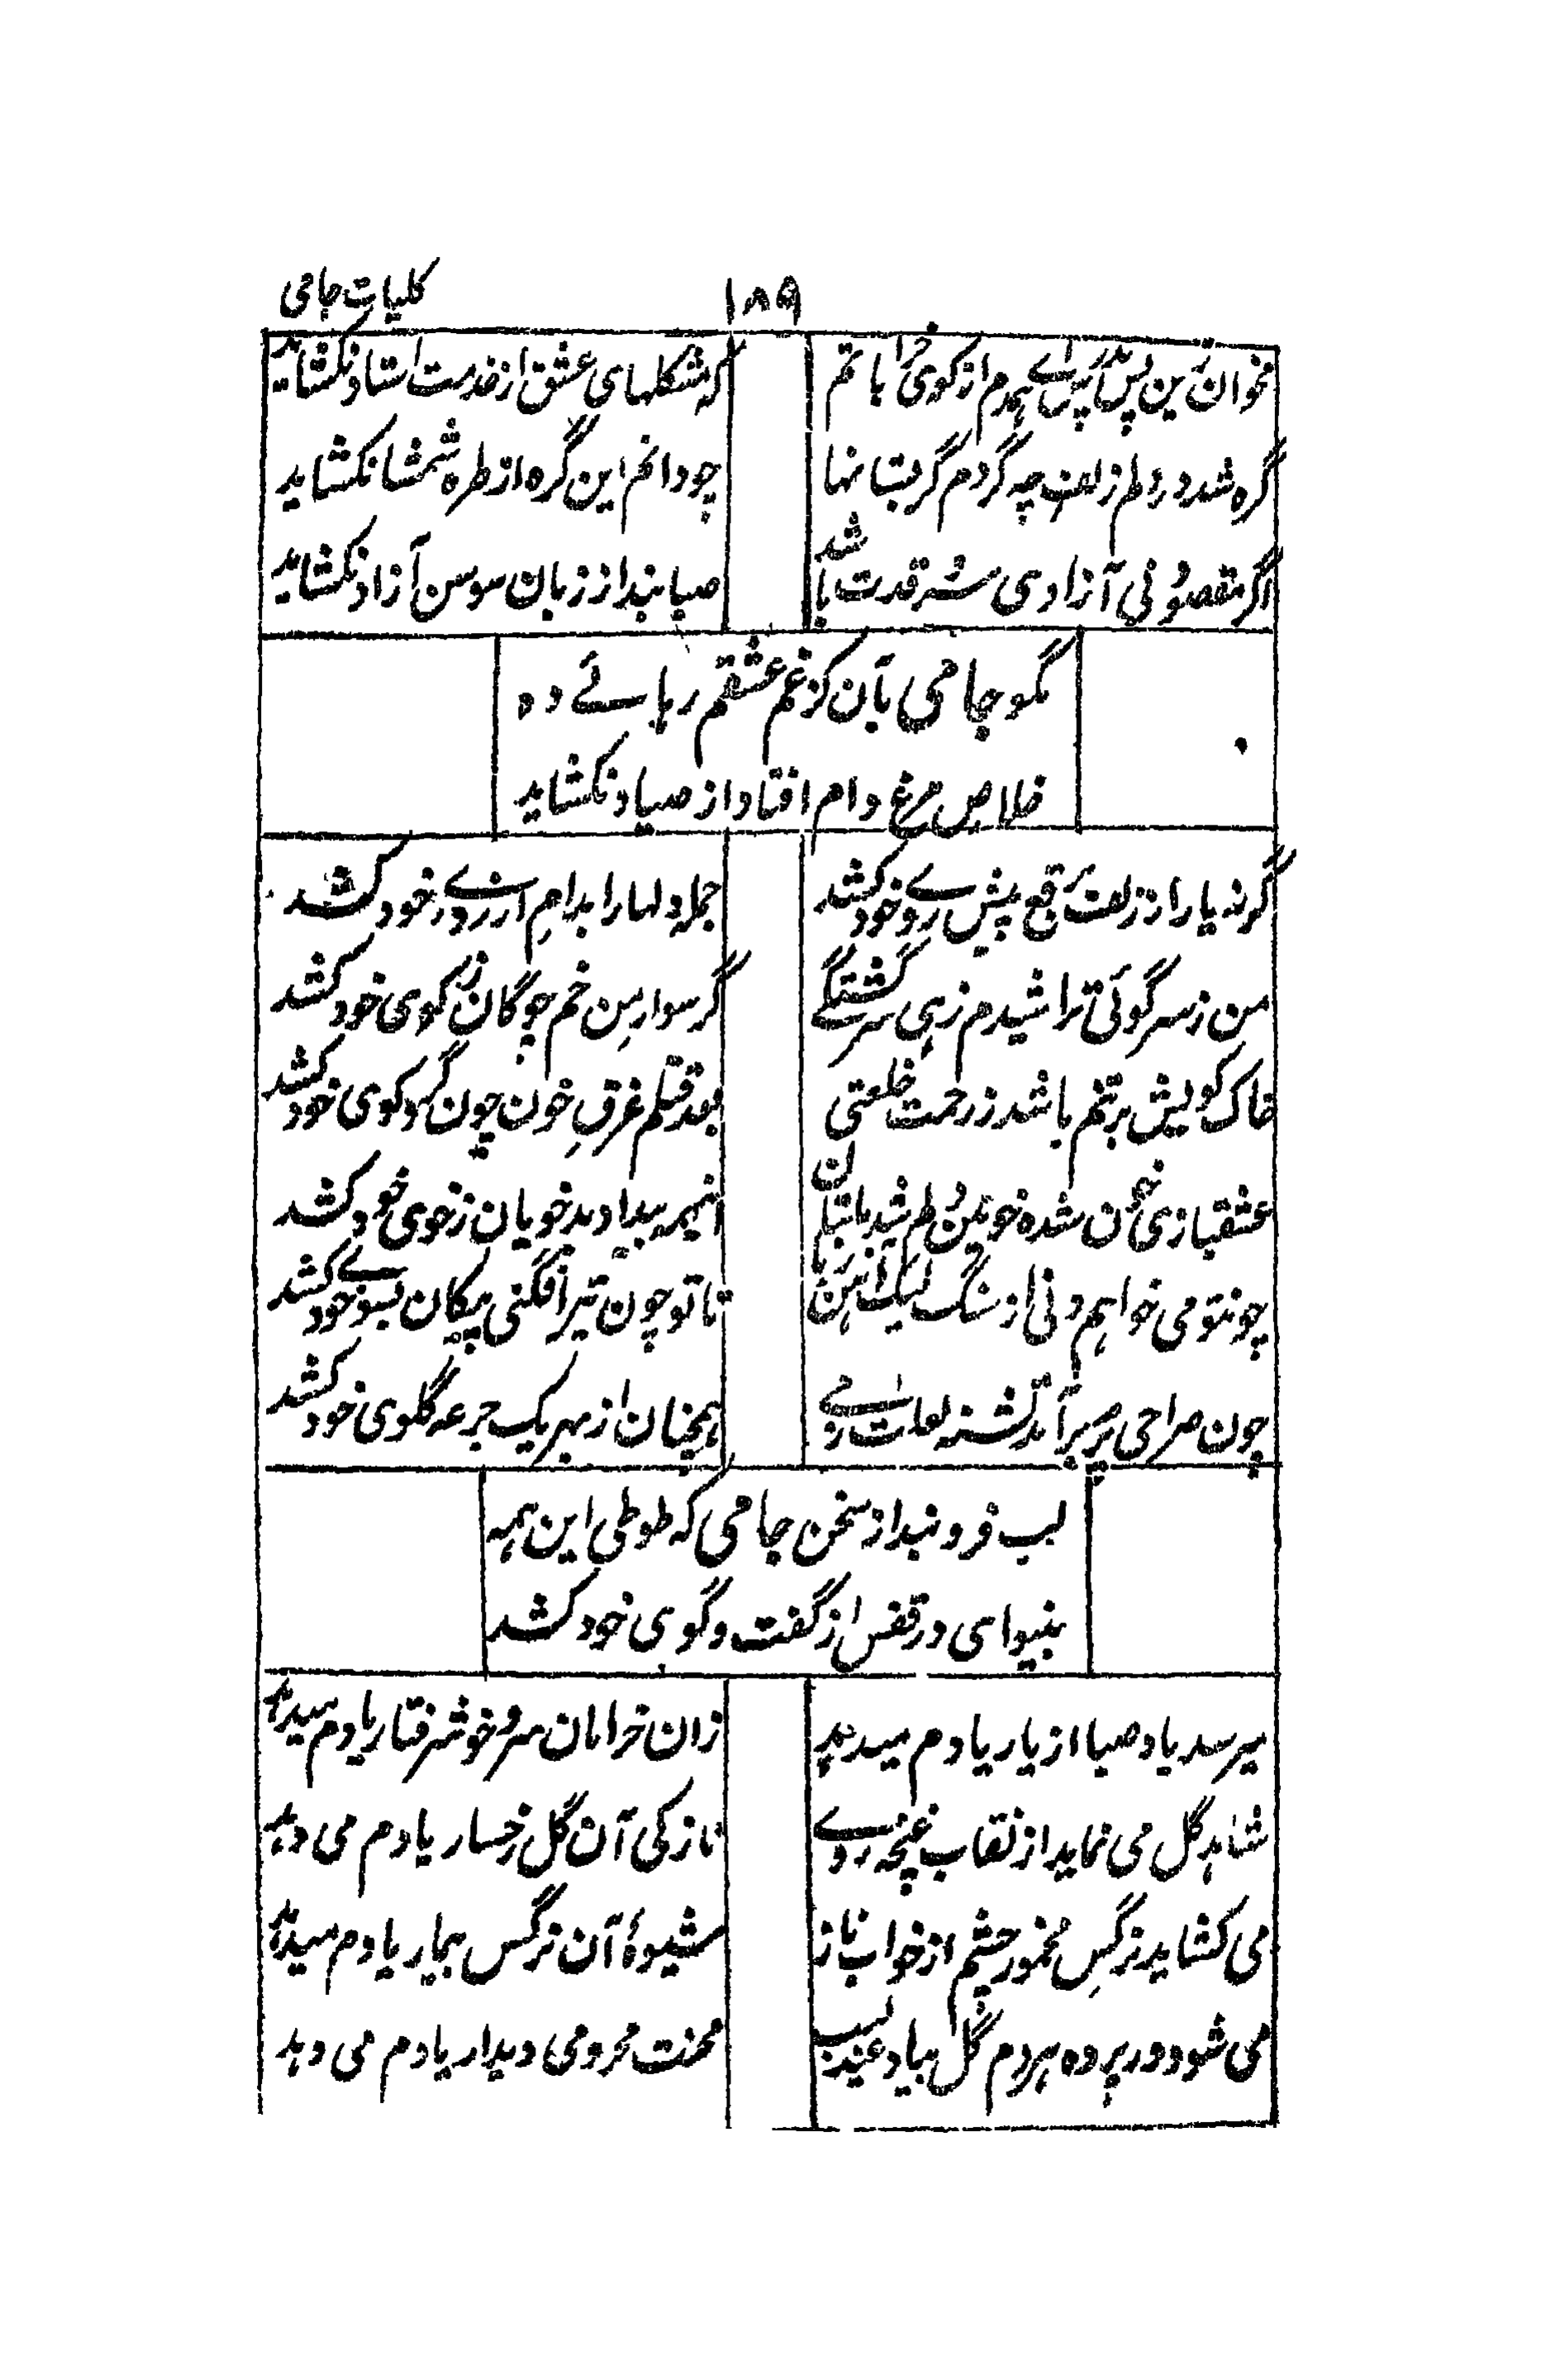 کلیات جامی
۱۸۹
مخوان زین پس بمدرس اے ہمدم از کوی خراباتم
که مشکلهای عشق از خدمت استاد نکشاید
گره شد در دلم زلفت چه گردم گرد بستانها
چو دانم این گره از طره شمشاد نکشاید
اگر مقصود نی آزادی سرو قدت باشد
صبا بند از زبان سوسن آزاد نکشاید
مگو جامی بآن کز غم عشقم رہائے ده
خلاص مرغ دام افتاد از صیاد نکشاید
گرنه یار از زلف برقع پیش روے خود کشد
جمله دلها را بدام آرزوے خود کشد
من ز سر گوئی تراشیدم زہی سرگشتگے
گر سوار من خم چوگان ز کوی خود کشد
خاک کویش بر تنم باشد ز رحمت خلعتی
بعد قتلم غرق خون چون گرد کوی خود کشد
عشقبازی چون شده خوی من دلم شد مبتلا
اینهمه بیداد بدخویان ز خوی خود کشد
چون تو می خواہم دلی از سنگ لیک از آہن ربا
تا تو چون تیر افگنی پیکان بسوے خود کشد
چون صراحی پر برآمد تشنه لعلت ز مے
ہمچنان از بہر یک جرعه گلوی خود کشد
لب فرو بند از سخن جامی که طوطی این ہمه
بینوای در قفس از گفت و گوی خود کشد
میرسد باد صبا از یار یادم میدہد
زان خرامان سرو خوشرفتار یادم میدہد
شاہد گل می نماید از نقاب غنچه روے
نازکی آن گل رخسار یادم می دہد
می کشاید نرگس مخمور چشم از خواب ناز
شیوۀ آن نرگس بیمار یادم میدہد
می شود در پرده ہر دم گل بیاد عندلیب
محنت محرومی دیدار یادم می دہد